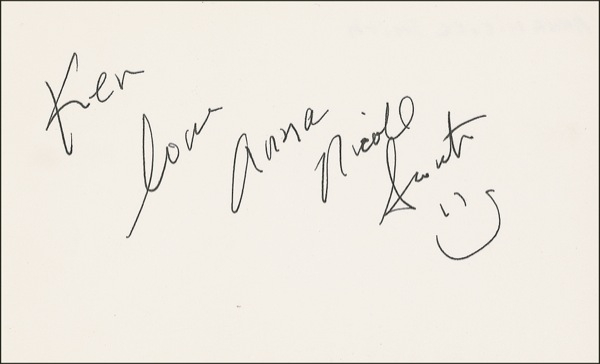 Ken
love Anna Nicole Smith